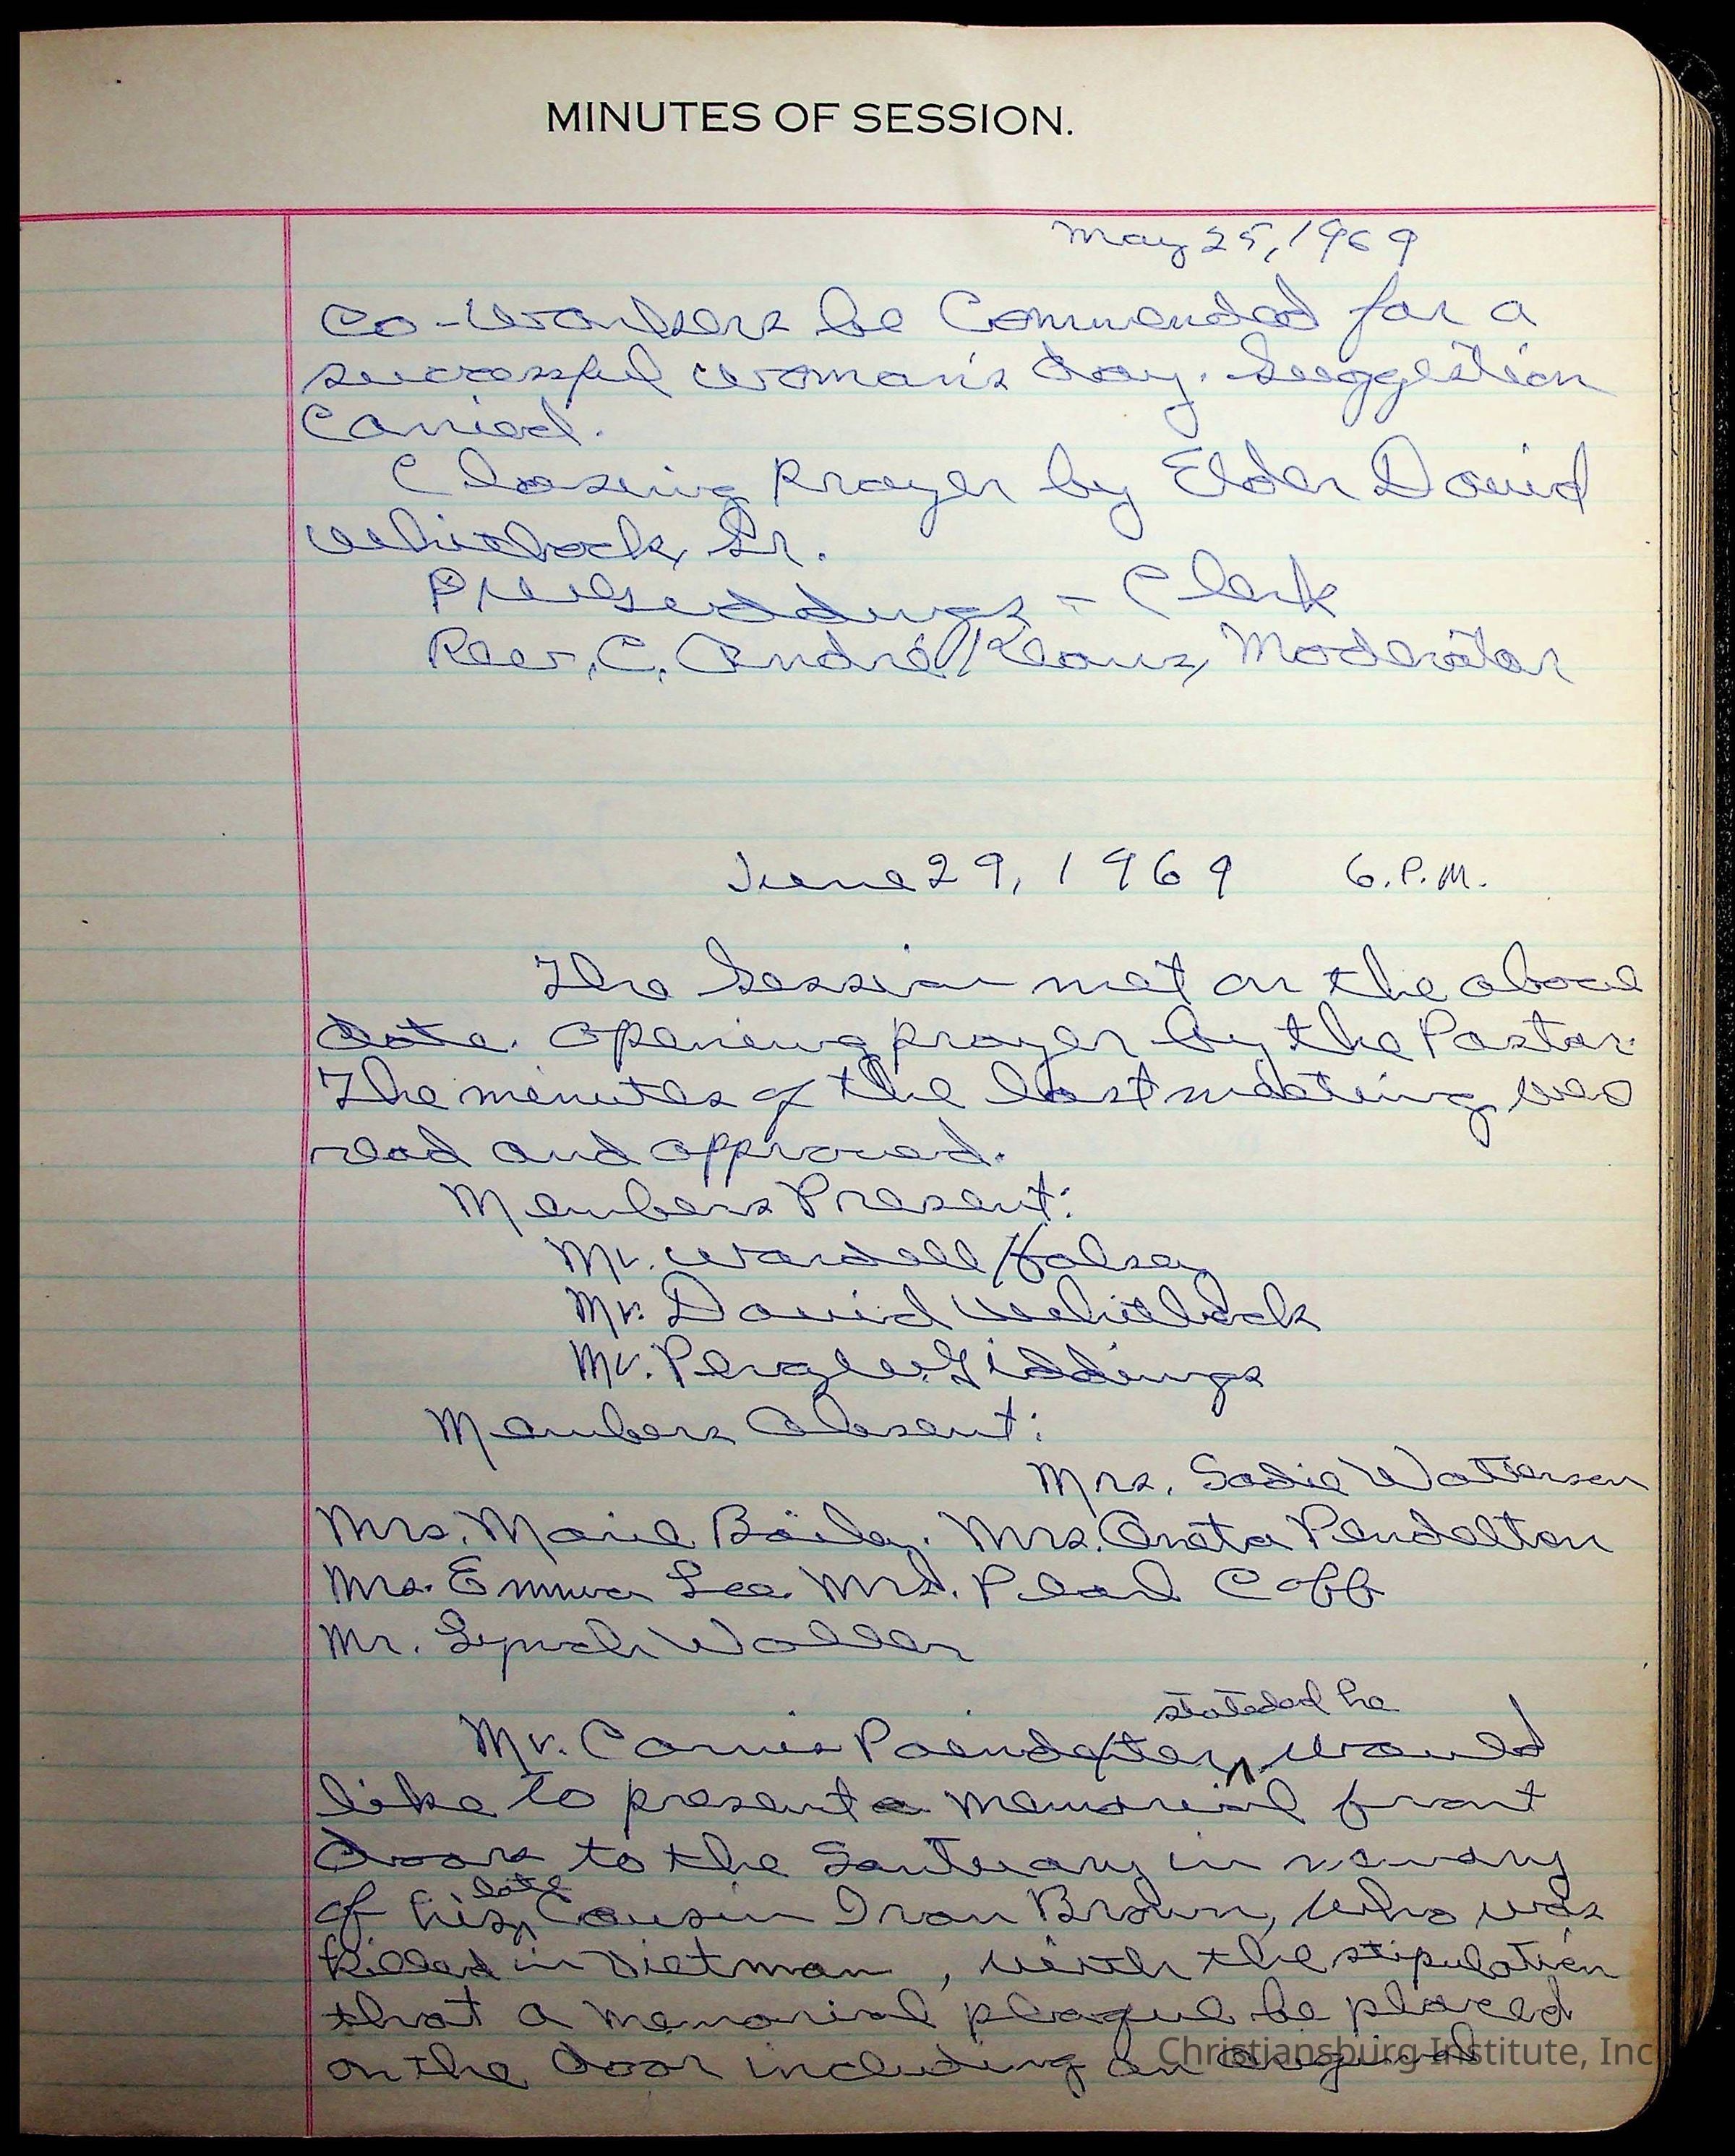 MINUTES OF SESSION.
May 25, 1969
Co-Workers be Commended for a
successful woman's day. Suggestion
Carried.
Closing Prayer by Elder David
Whitlock, Sr.
Giddings - Clerk
Rev. C. André Kearns, Moderator
June 29, 1969 6. P.M.
The Session met on the above
date. Opening prayer by the Pastor.
The minutes of the last meeting was
read and approved.
Members Present:
Mr. Wardell Halsey
Mr. David Whitlock
Mr. Giddings
Members Absent:
Mrs. Sadie Watterson
Mrs. Marie Bailey. Mrs. Aneta Pendelton
Mrs. Emma Lee Mrs. Pearl Coff
Mr. Lynch Waller
stateded he
Mr. Poindexter, ^ would
like to present a memorial front
doors to the Santuary in memory
late
of his ^ Cousin Ivan Brown, who was
killed in Vietman, with the stipulation
that a memorial plaque be placed
on the door including an
Christiansburg Institute, Inc